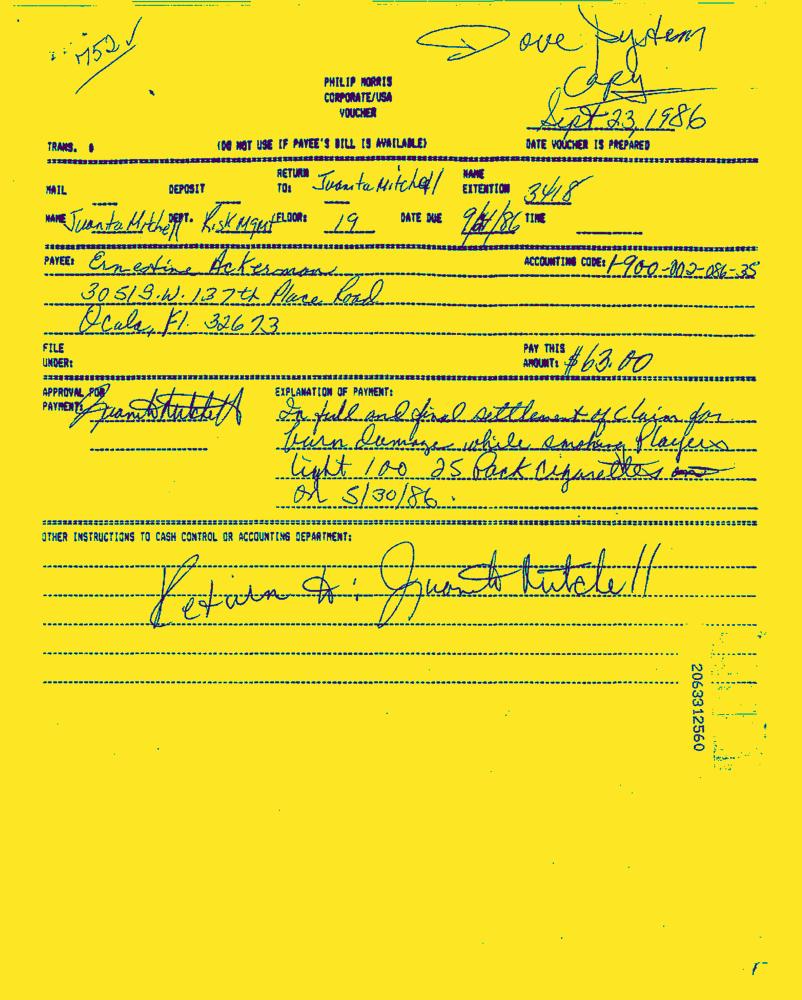 1752 ✓
Dove System
Copy
PHILIP MORRIS
CORPORATE/USA
VOUCHER
Sept 23, 1986
TRANS. #
(DO NOT USE IF PAYEE'S BILL IS AVAILABLE)
DATE VOUCHER IS PREPARED
MAIL DEPOSIT RETURN TO: Juanita Mitchell NAME EXTENTION 3418
NAME Juanita Mitchell DEPT. Risk Mgmt FLOOR: 19 DATE DUE 9/24/86 TIME
PAYEE: Ernestine Ackerman ACCOUNTING CODE: 1-900-002-086-35
3051 S.W. 137th Place Road
Ocala, Fl. 32673
FILE UNDER:
PAY THIS AMOUNT: $63.00
APPROVAL FOR PAYMENT: Juanita Mitchell
EXPLANATION OF PAYMENT:
In full and final settlement of Claim for
burn damage while smoking Players
light 100 25 Pack Cigarettes
on 5/30/86.
OTHER INSTRUCTIONS TO CASH CONTROL OR ACCOUNTING DEPARTMENT:
Return to: Juanita Mitchell
2063312560